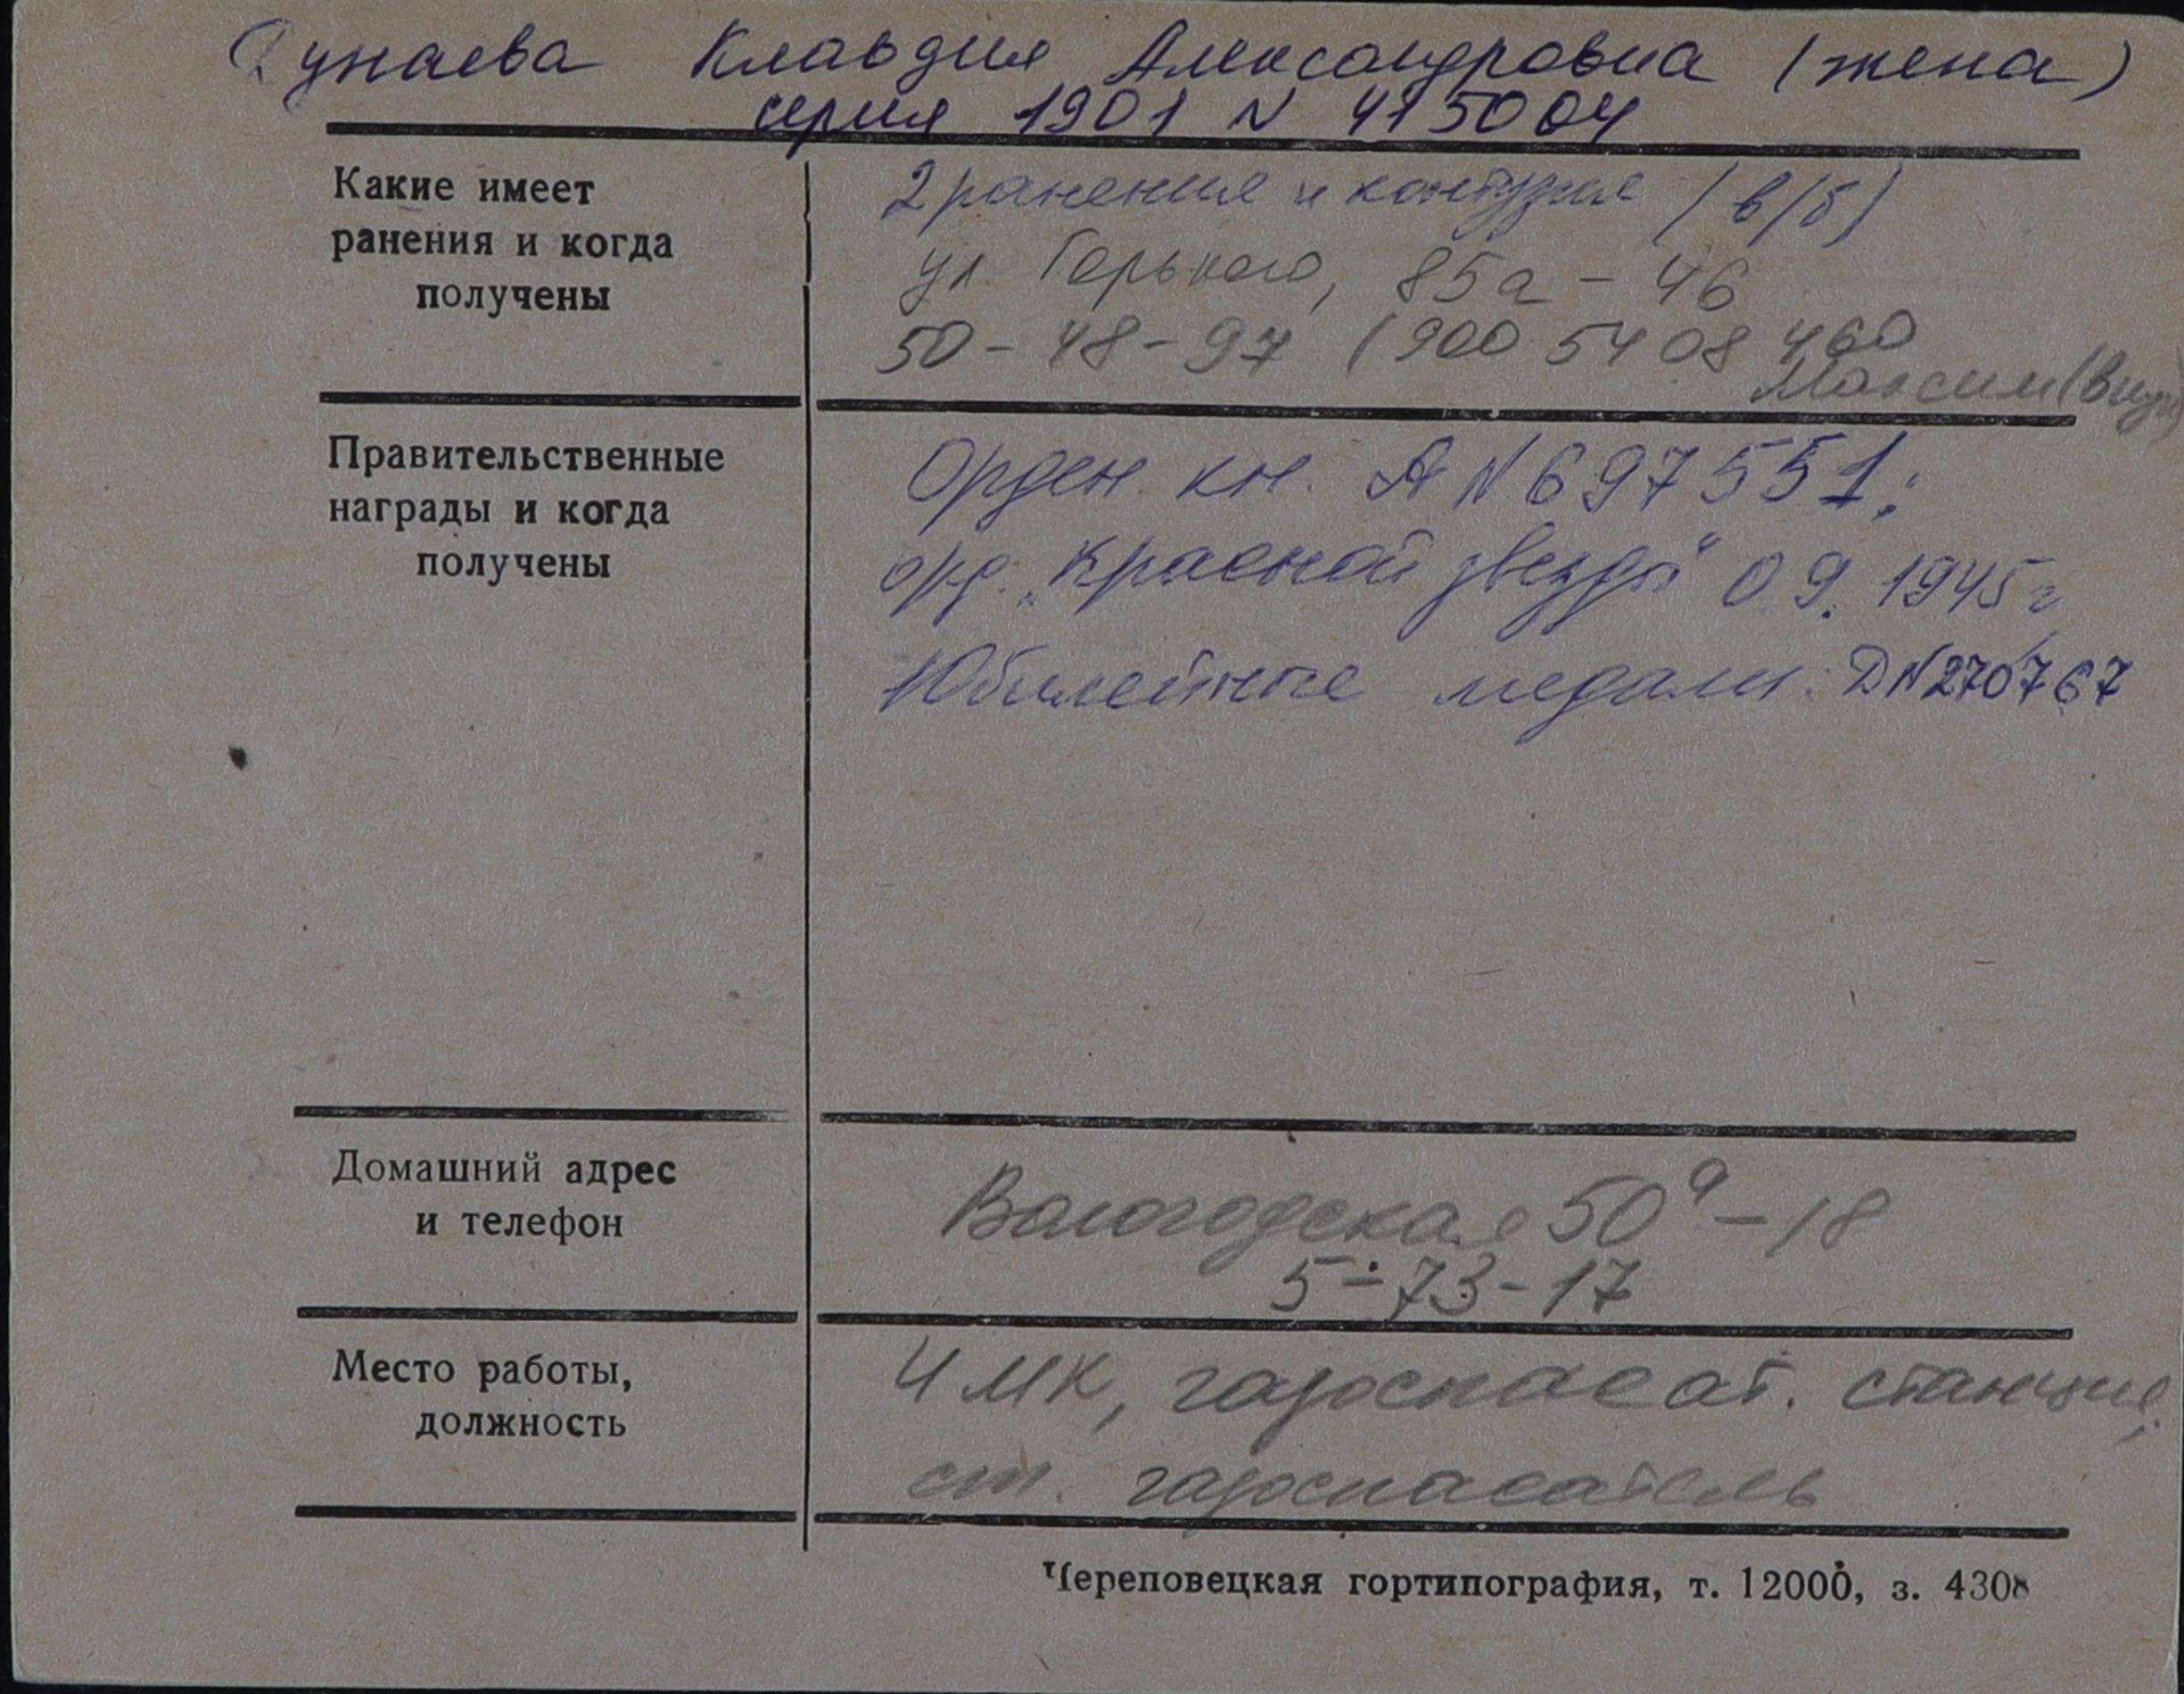 Дунаева Клавдия Александровна (жена)
серия 1901 N 415004
Какие имеет
ранения и когда
получены
2 ранения и контузия (в/б)
ул. Горького, 85а - 46
50-48-97 (900 54 08 460
Максим (внук)
Правительственные
награды и когда
получены
Орден. кн. А N 697551;
орд. „Красной звезды" 09. 1945 г
Юбилейные медали. Д N 270767
Домашний адрес
и телефон
Вологодская 50а - 18
5-73-17
Место работы,
должность
ЧМК, газоспасат. станция,
ст. газоспасатель
Череповецкая гортипография, т. 12000, з. 4308